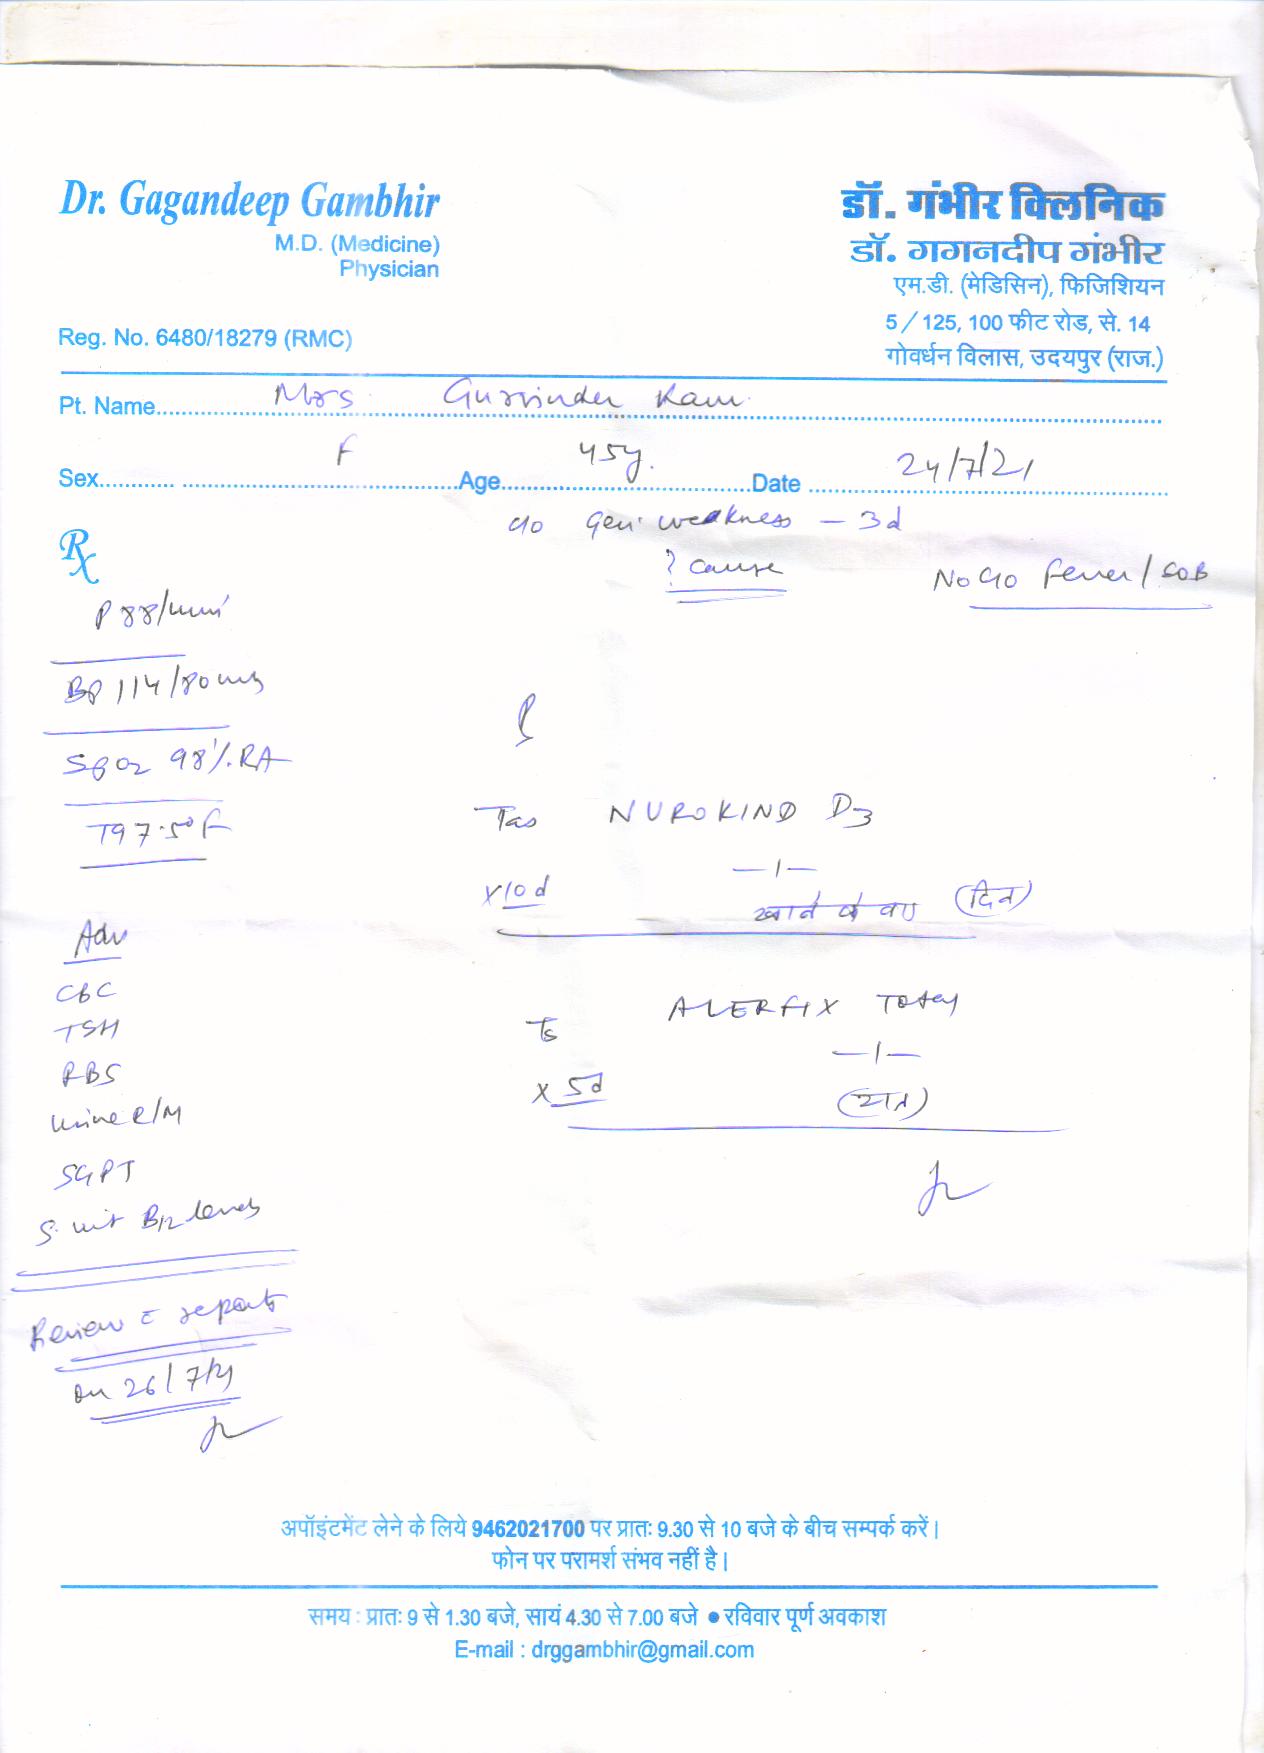 Dr. Gagandeep Gambhir
M.D. (Medicine)
Physician
Reg. No. 6480/18279 (RMC)
डॉ. गंभीर क्लिनिक
डॉ. गगनदीप गंभीर
एम.डी. (मेडिसिन), फिजिशियन
5/125, 100 फीट रोड, से. 14
गोवर्धन विलास, उदयपुर (राज.)
Pt. Name Mrs Gurvinder Kaur
Sex F Age 45y. Date 24/7/21
Rx
c/o Gen. weakness - 3d
? cause
No c/o fever / SOB
P 88/min
BP 114/80
SpO2 98% RA
T 97.5°F
Adv
CBC
TSH
RBS
Urine R/M
SGPT
S. vit B12 levels
Review c reports
on 26/7/21
Tab NUROKIND D3
—1—
x10d
खाने के बाद (दिन)
ALERFIX Totay
—1—
x 5d
(रात)
अपॉइंटमेंट लेने के लिये 9462021700 पर प्रातः 9.30 से 10 बजे के बीच सम्पर्क करें।
फोन पर परामर्श संभव नहीं है।
समय : प्रातः 9 से 1.30 बजे, सायं 4.30 से 7.00 बजे ● रविवार पूर्ण अवकाश
E-mail : drggambhir@gmail.com